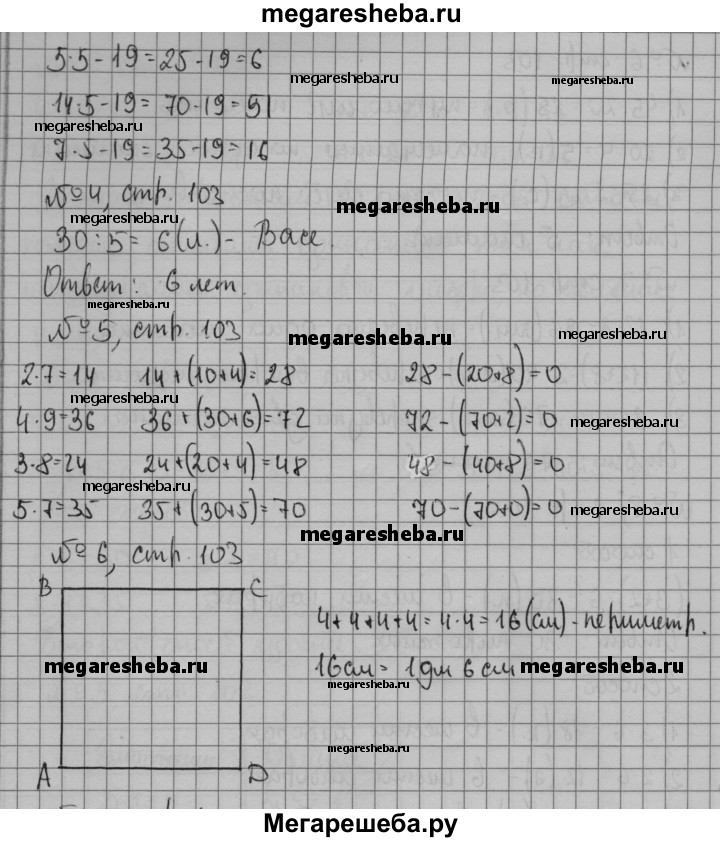 megaresheba.ru
5·5-19=25-19=6
megaresheba.ru
megaresheba.ru
14·5-19=70-19=51
megaresheba.ru
7·5-19=35-19=16
№4, стр. 103
megaresheba.ru
megaresheba.ru
30:5=6(л.)- Васе.
Ответ: 6 лет.
megaresheba.ru
№5, стр. 103
megaresheba.ru
megaresheba.ru
2·7=14 14+(10+4)=28 28-(20+8)=0
megaresheba.ru
4·9=36 36+(30+6)=72 72-(70+2)=0
megaresheba.ru
3·8=24 24+(20+4)=48 48-(40+8)=0
megaresheba.ru
5·7=35 35+(30+5)=70 70-(70+0)=0
megaresheba.ru
megaresheba.ru
№6, стр. 103
B C
4+4+4+4=4·4=16(см)-периметр.
megaresheba.ru
16см=1дм 6см
megaresheba.ru
megaresheba.ru
megaresheba.ru
A D
Мегарешеба.ру